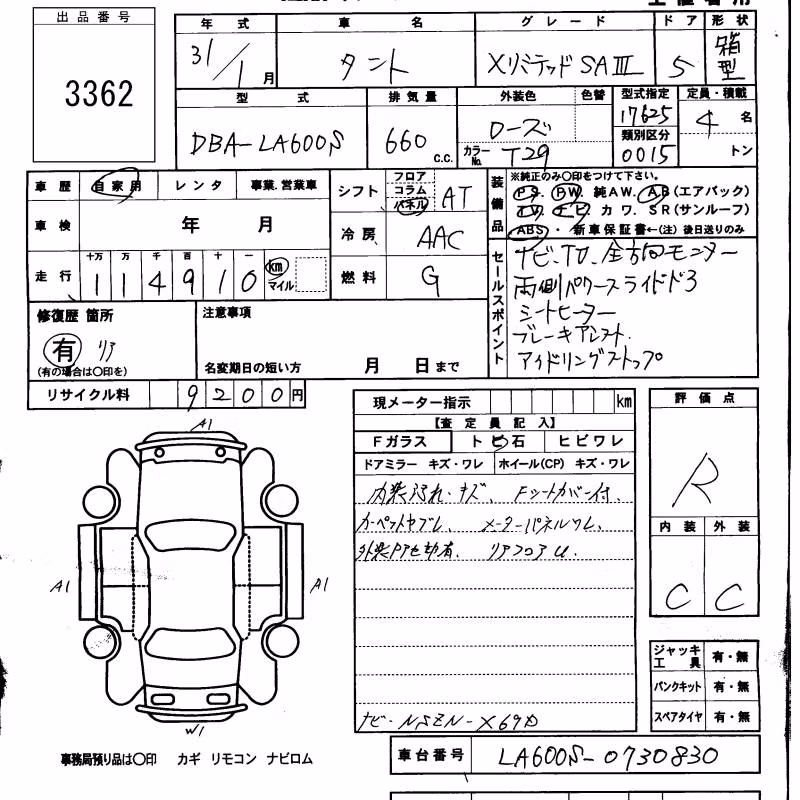 出品番号
3362
年式 車名 グレード ドア 形状
31/1月 タント XリミテッドSAⅢ 5 箱型
型式 排気量 外装色 色替 型式指定 定員・積載
DBA-LA600S 660 c.c. ローズ 17625 4名
カラーNo. T29 類別区分 0015 トン
車歴 自家用 レンタ 事業.営業車
シフト フロア コラム パネル AT
装備品 ※純正のみ〇印をつけて下さい。
PS PW 純AW. AB(エアバック)
TV ナビ カワ. SR(サンルーフ)
ABS・新車保証書←(注) 後日送りのみ
車検 年 月
冷房 AAC
走行 十万 万 千 百 十 一
114910 km マイル
燃料 G
セールスポイント
ナビ.TV.全方向モニター
両側パワースライドド3
シートヒーター
ブレーキアシスト.
アイドリングストップ
修復歴 箇所
有 リア
(有の場合は〇印を)
注意事項
名変期日の短い方 月 日まで
リサイクル料 9200円
現メーター指示 km
【査定員記入】
Fガラス トビ石 ヒビワレ
ドアミラー キズ・ワレ ホイール(CP) キズ・ワレ
内装汚れ・キズ、 Fシートカバー付.
カーペットヤブレ、 メーターパネルワレ.
リアフロアU.
ナビ・NSZN-X69D
評価点
R
内装 外装
C C
A1
A1
A1
W1
ジャッキ工具 有・無
パンクキット 有・無
スペアタイヤ 有・無
事務局預り品は〇印 カギ リモコン ナビロム
車台番号 LA600S-0730830